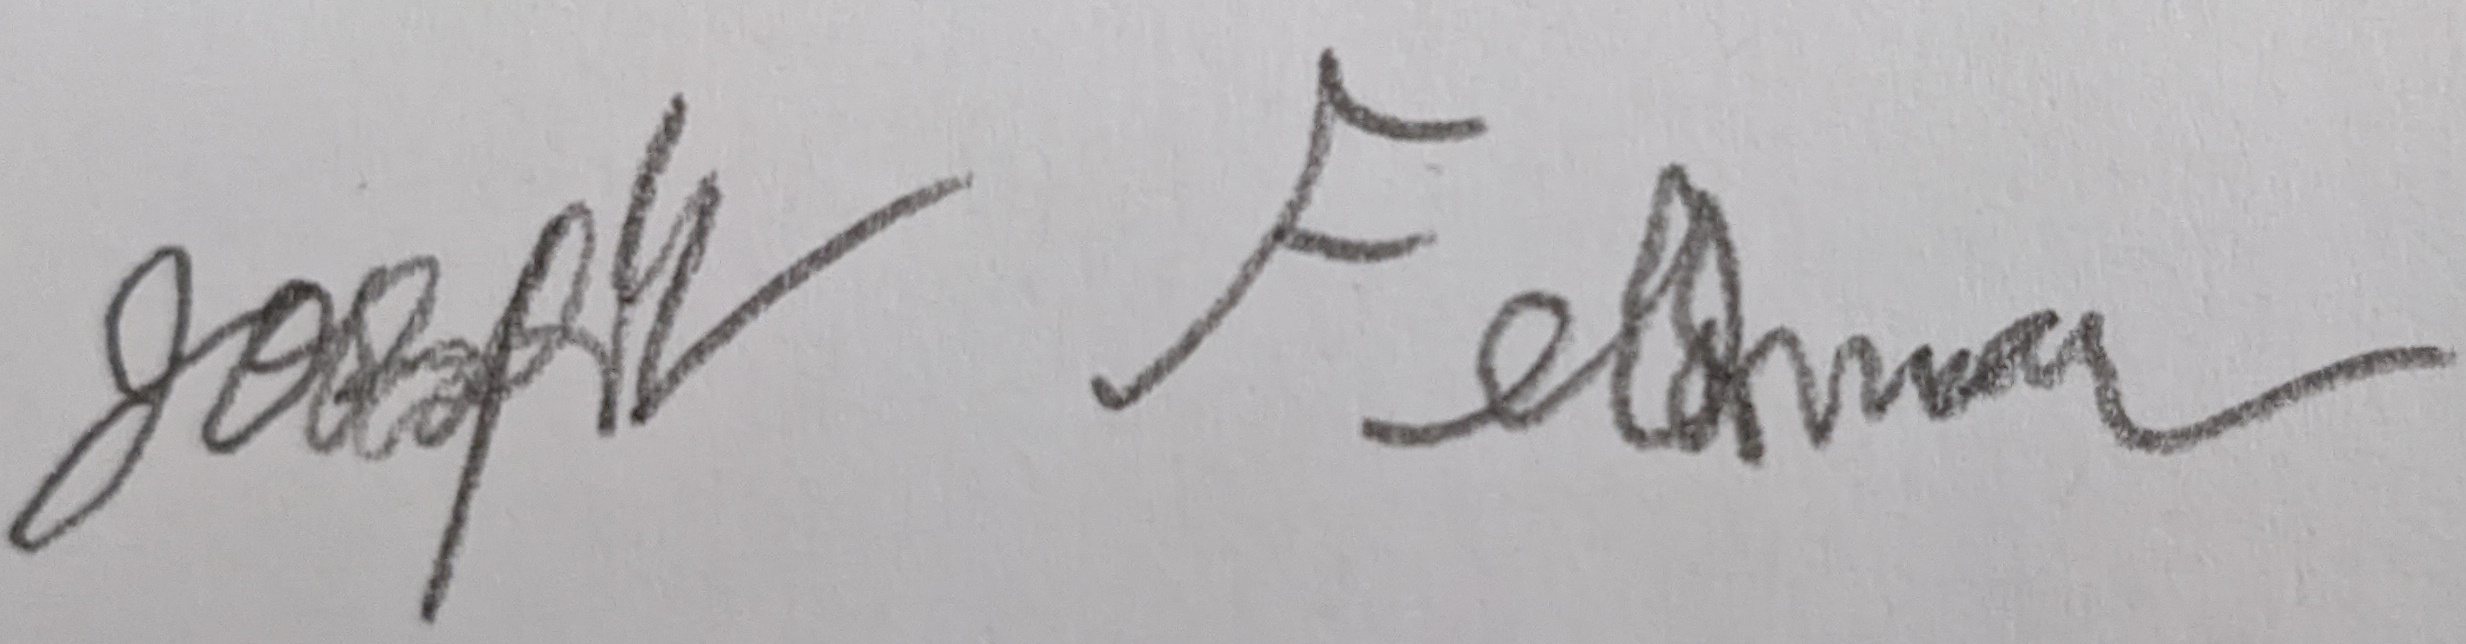 Joseph Feldman